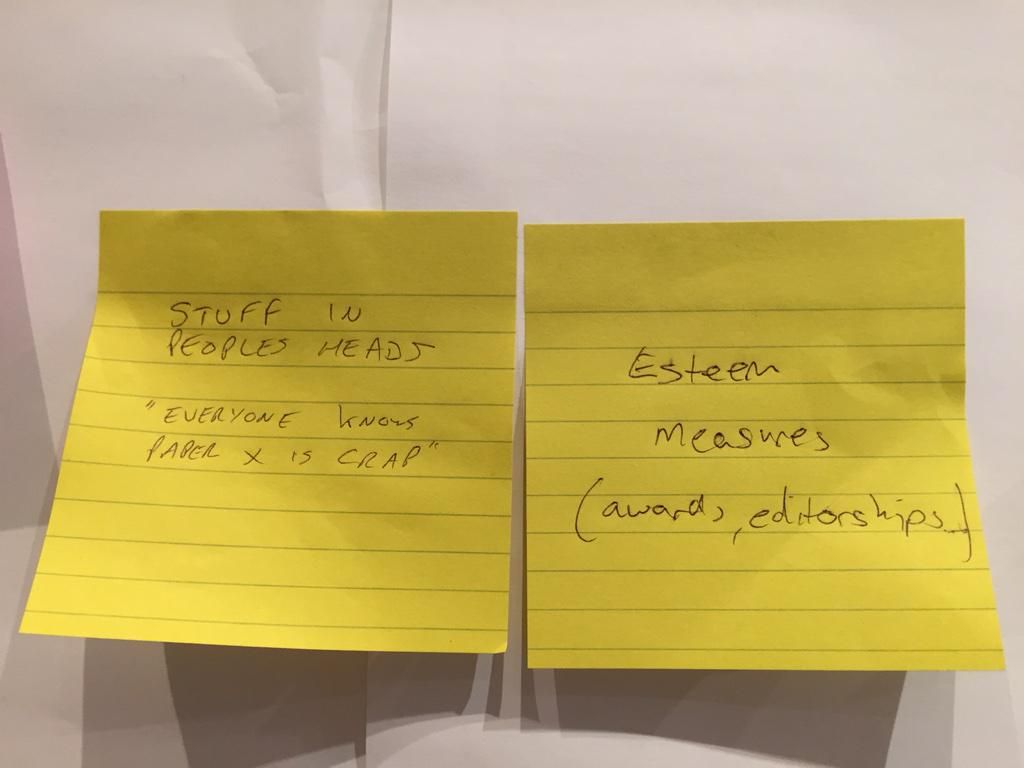 STUFF IN
PEOPLES HEADS
"EVERYONE KNOWS
PAPER X IS CRAP"
Esteem
Measures
(awards, editorships...)